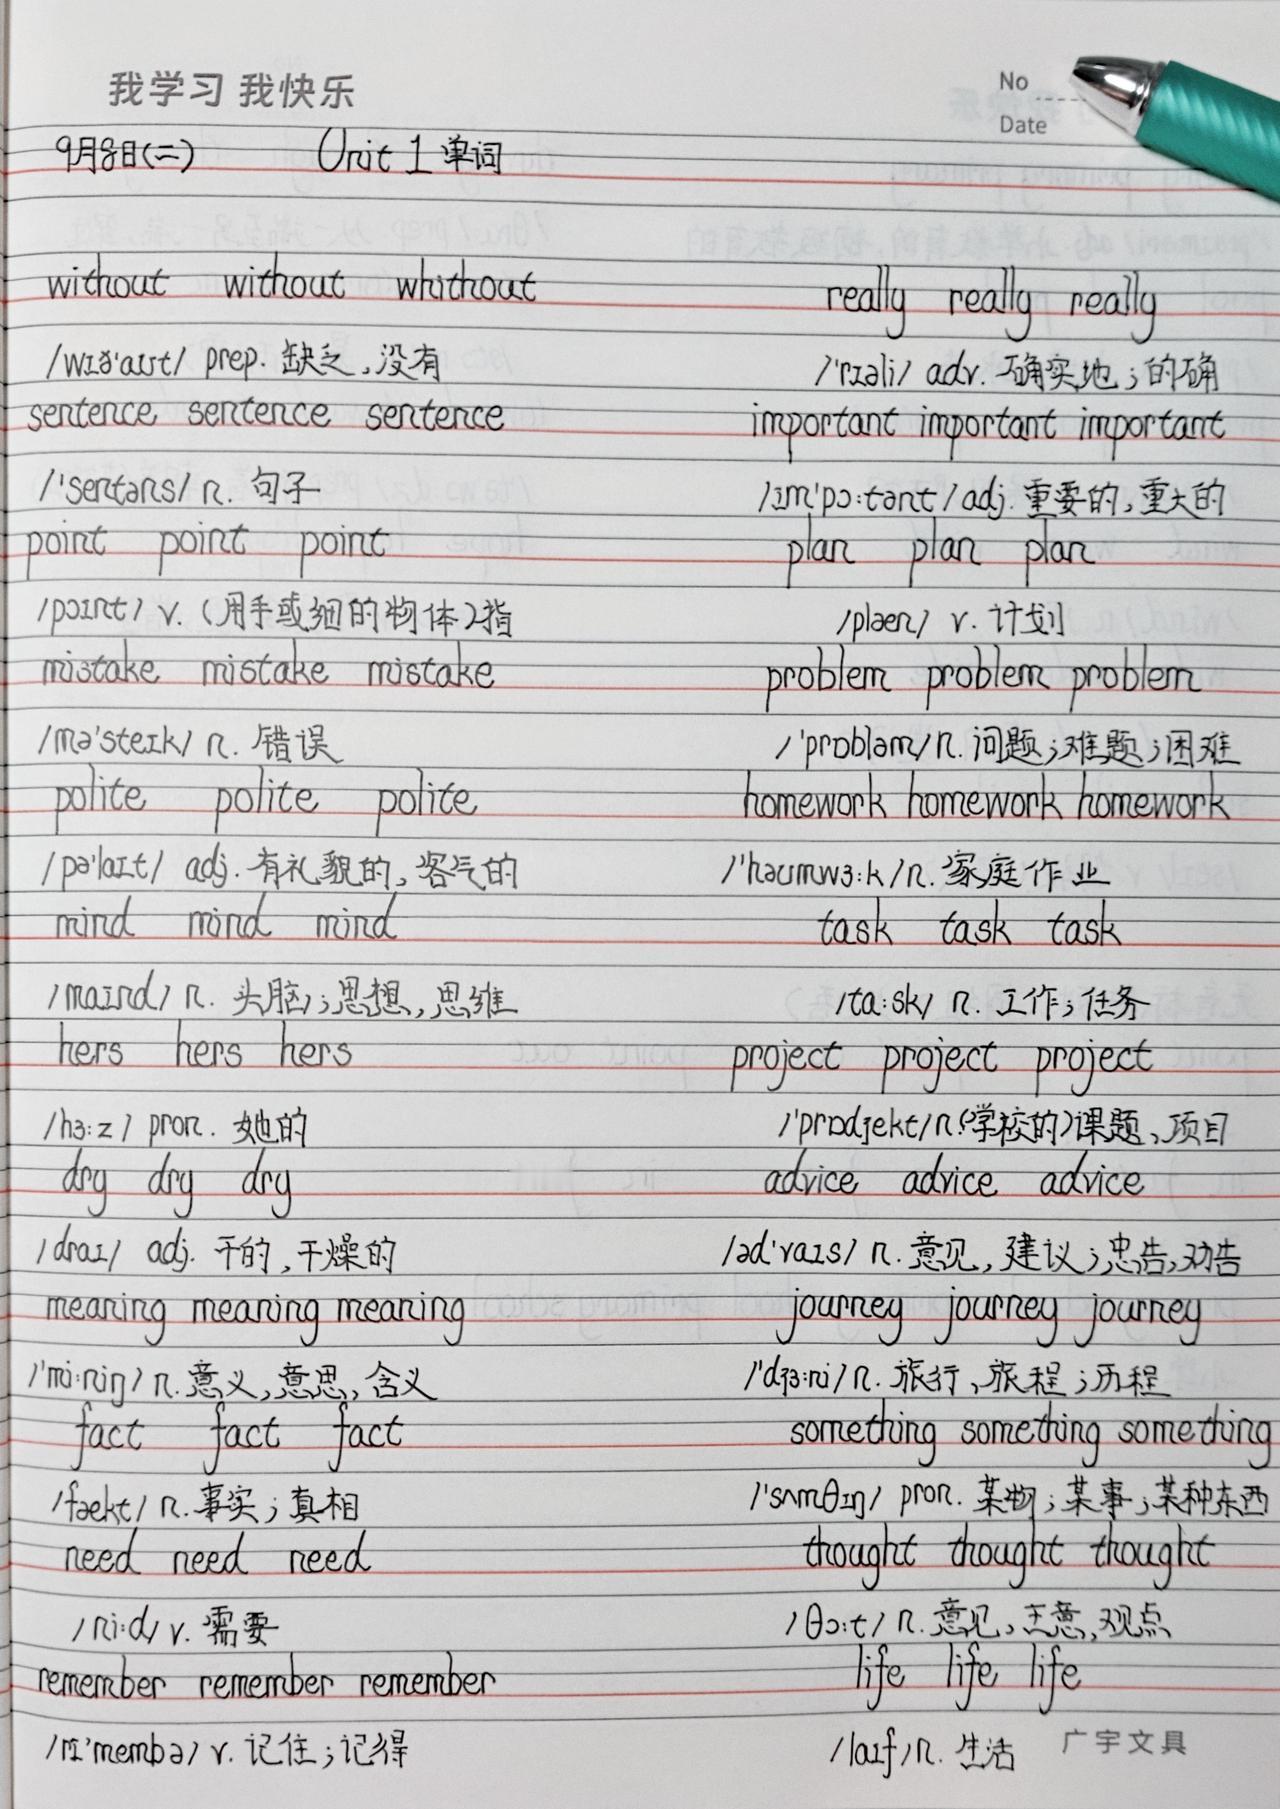 我学习 我快乐
No
Date
9月8日(二) Unit 1 单词
without without whithout
/wɪð'aʊt/ prep. 缺乏,没有
sentence sentence sentence
/'sentəns/ n. 句子
point point point
/pɔɪnt/ v. (用手或细的物体)指
mistake mistake mistake
/mə'steɪk/ n. 错误
polite polite polite
/pə'laɪt/ adj. 有礼貌的,客气的
mind mind mind
/maɪnd/ n. 头脑;思想,思维
hers hers hers
/hɜ:z/ pron. 她的
dry dry dry
/draɪ/ adj. 干的,干燥的
meaning meaning meaning
/'mi:niŋ/ n. 意义,意思,含义
fact fact fact
/fækt/ n. 事实;真相
need need need
/ni:d/ v. 需要
remember remember remember
/rɪ'membə/ v. 记住;记得
really really really
/'rɪəli/ adv. 确实地;的确
important important important
/ɪm'pɔ:tənt/ adj. 重要的,重大的
plan plan plan
/plæn/ v. 计划
problem problem problem
/'prɒbləm/ n. 问题;难题;困难
homework homework homework
/'həʊmwɜ:k/ n. 家庭作业
task task task
/ta:sk/ n. 工作;任务
project project project
/'prɒdʒekt/ n.(学校的)课题、项目
advice advice advice
/əd'vaɪs/ n. 意见,建议;忠告,劝告
journey journey journey
/'dʒɜ:ni/ n. 旅行、旅程;历程
something something something
/'sʌmθɪŋ/ pron. 某物;某事;某种东西
thought thought thought
/θɔ:t/ n. 意见,主意,观点
life life life
/laɪf/ n. 生活
广宇文具